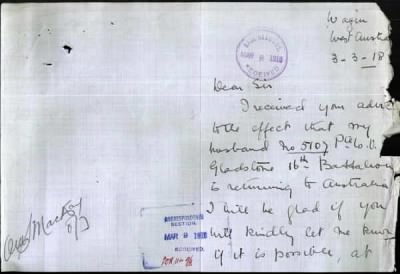 Wagin
West Austra
3-3-18
BASE RECORDS
MAR 9 1918
RECEIVED
Dear Sir
I received you advice
to the effect that my
husband No 5107 Pte
Gladstone 16th Battalion
is returning to Australia
I will be glad if you
will kindly let me know
if it is possible, at
CORRESPONDENCE
SECTION.
MAR 9 1918
RECEIVED.